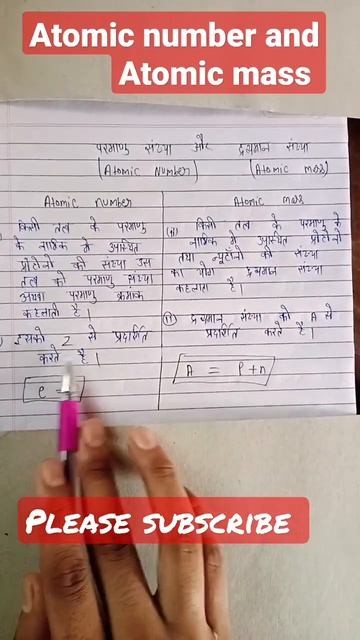 Atomic number and
Atomic mass
परमाणु संख्या और द्रव्यमान संख्या
(Atomic Number) (Atomic mass)
Atomic number
किसी तत्व के परमाणु
के नाभिक में उपस्थित
प्रोटोनों की संख्या उस
तत्व की परमाणु संख्या
अथवा परमाणु क्रमांक
कहलाती है।
इसको Z से प्रदर्शित
करते है।
Atomic mass
(i) किसी तत्व के परमाणु के
नाभिक में उपस्थित प्रोटोनों
तथा न्यूट्रॉनों की संख्या
का योग द्रव्यमान संख्या
कहलाता है।
(ii) द्रव्यमान संख्या को A से
प्रदर्शित करते है।
A = P+n
PLEASE SUBSCRIBE